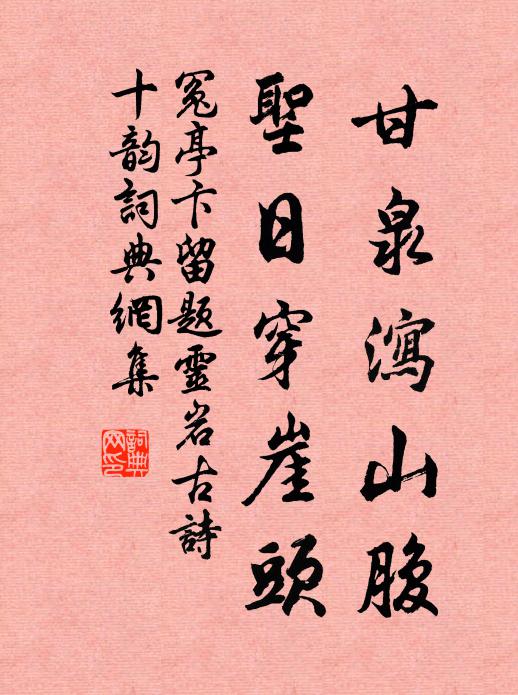 甘泉瀉山腹
聖日穿崖頭
冤亭卞留題靈岩古詩
十韵詞典網集
詞典網印